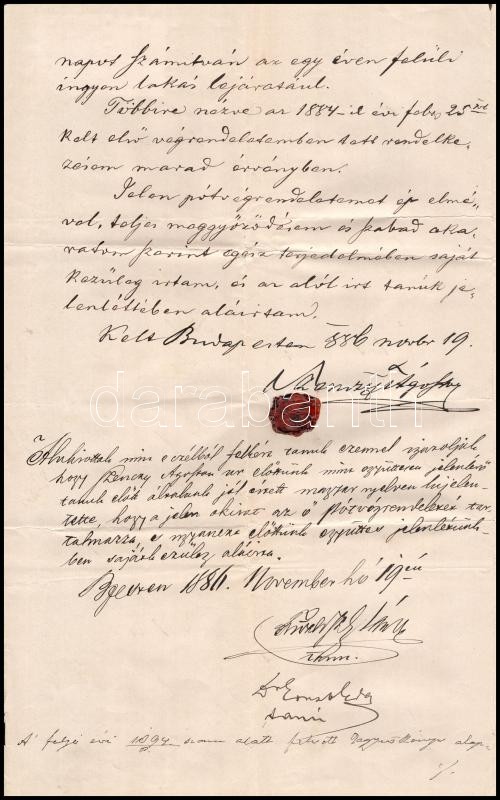 napot számítván az egy éven felüli
ingyen lakás lejáratául.
Többire nézve az 1884-ik évi febr. 25-én
kelt első végrendeletemben tett rendelke-
zésem marad érvényben.
Jelen pótvégrendeletemet ép elmé-
vel, teljes meggyőződésem és szabad aka-
ratom szerint egész terjedelmében saját
kezüleg irtam, és az alól irt tanúk je-
lenlétében aláirtam.
Kelt Budapesten 886 novbr 19.
Ágoston
darabanth
Alulirottak mint e czélból felkért tanuk ezennel igazoljuk
hogy Ágoston ur előttünk mint együttesen jelenlévő
tanuk előtt általunk jól értett magyar nyelven kijelen-
tette, hogy a jelen okirat az ő pótvégrendeletét tar-
talmazza, s ugyanezt előttünk együttes jelenlétünk-
ben sajátkezüleg aláirta.
Bpesten 1886. November hó 19én
tanu.
Dr
tanú
A' felji évi 1894 szám alatt alap-
./.